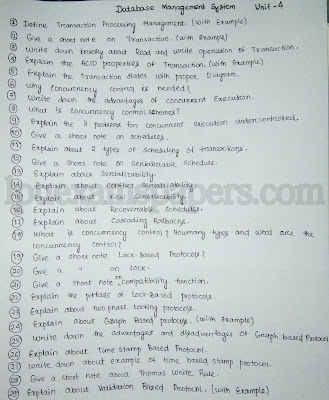 Database Management System Unit-4
① Define Transaction Processing Management. (with Example)
② Give a short note on Transaction. (with Example)
③ Write down briefly about Read and write operation of Transaction.
④ Explain the ACID properties of Transaction. (with Example)
⑤ Explain the Transaction states with proper Diagram.
⑥ Why Concurrency control is needed?
⑦ Write down the advantages of concurrent Execution.
⑧ What is concurrency control schemes?
⑨ Explain the 3 problems for concurrent execution uncontrolled.
⑩ Give a short note on schedules.
⑪ Explain about 2 types of scheduling of transactions.
⑫ Give a short note on serializable schedule.
⑬ Explain about serializability.
⑭ Explain about conflict serializability.
⑮ Explain about View serializability.
⑯ Explain about Recoverable Schedules.
⑰ Explain about Cascading Rollbacks.
⑱ What is concurrency control? How many types and what are the
concurrency control?
⑲ Give a short note Lock-Based Protocols?
⑳ Give a " on Lock.
㉑ Give a short note on compatibility function.
㉒ Explain the pitfalls of Lock-Based protocols.
㉓ Explain about two phase Locking protocols.
㉔ Explain about Graph Based protocols. (with Example)
㉕ Write down the advantages and disadvantages of Graph based Protocol
㉖ Explain about Time stamp Based Protocol.
㉗ Write down about example of time based stamp protocol.
㉘ Give a short note about Thomas Write Rule.
㉙ Explain about Validation Based Protocol. (with Example)